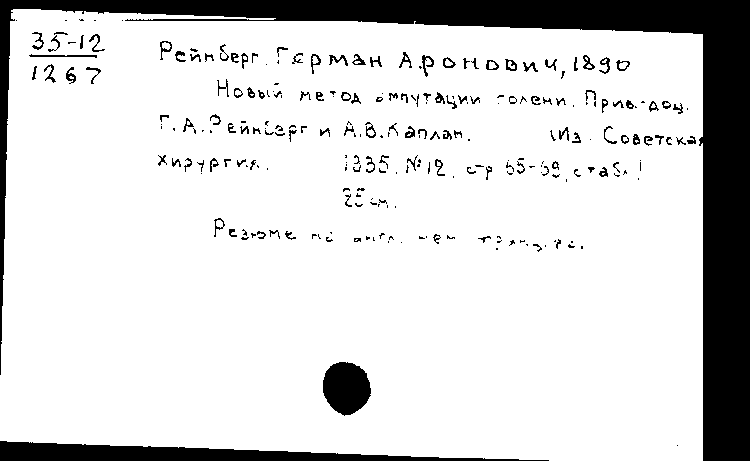 35-12
1267
Рейнберг, Герман Аронович, 1890
Новый метод ампутации голени. Прив.-доц.
Г.А. Рейнберг и А.В. Каплан. (Из. Советская
хирургия. 1935. №12. стр 65-69, с табл!
25 см.
Резюме на англ. нем. франц. яз.